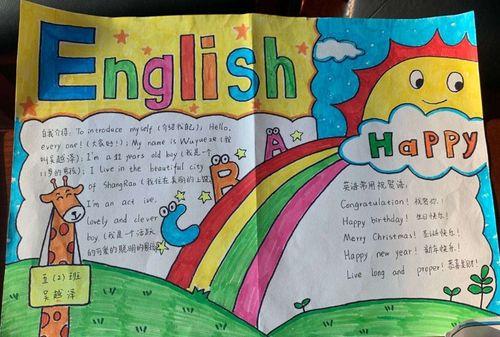 English
自我介绍: To introduce myself (介绍我自己), Hello,
every one! (大家好!); My name is Wuyueze (我
叫吴越泽); I'm a 11 years old boy (我是一个
11岁的男孩); I live in the beautiful city
of ShangRao (我住在美丽的上饶
I'm an act ive,
lovely and clever
boy (我是一个活跃
的可爱的聪明的男孩
五(2)班
吴越泽
A
B
C
Happy
英语常用祝贺语:
Congratulation! 祝贺你!
Happy birthday! 生日快乐!
Merry Christmas! 圣诞快乐!
Happy new year! 新年快乐!
Live long and proper! 恭喜发财!